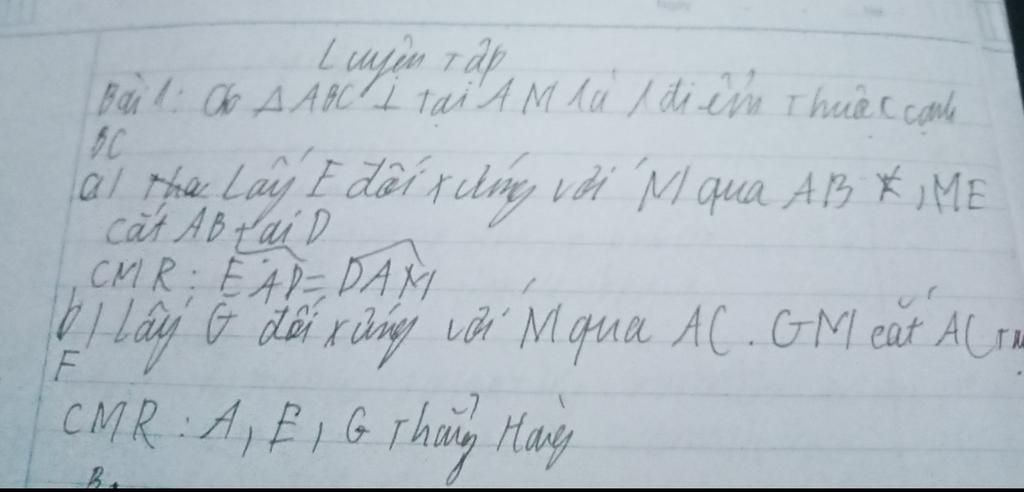 Luyện Tập
Bài 1: Cho △ABC ⊥ Tại A M là 1 điểm Thuộc cạnh
BC
a) Lấy E đối xứng với M qua AB, ME
cắt AB tại D
CMR: \widehat{EAD}=\widehat{DAM}
b) Lấy G đối xứng với M qua AC. GM cắt AC
F
CMR: A, E, G Thẳng Hàng
B